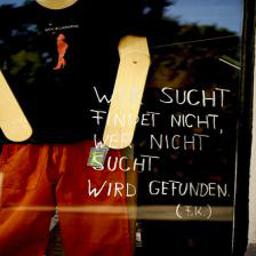 WER SUCHT
FINDET NICHT,
WER NICHT
SUCHT
WIRD GEFUNDEN.
(F.K.)